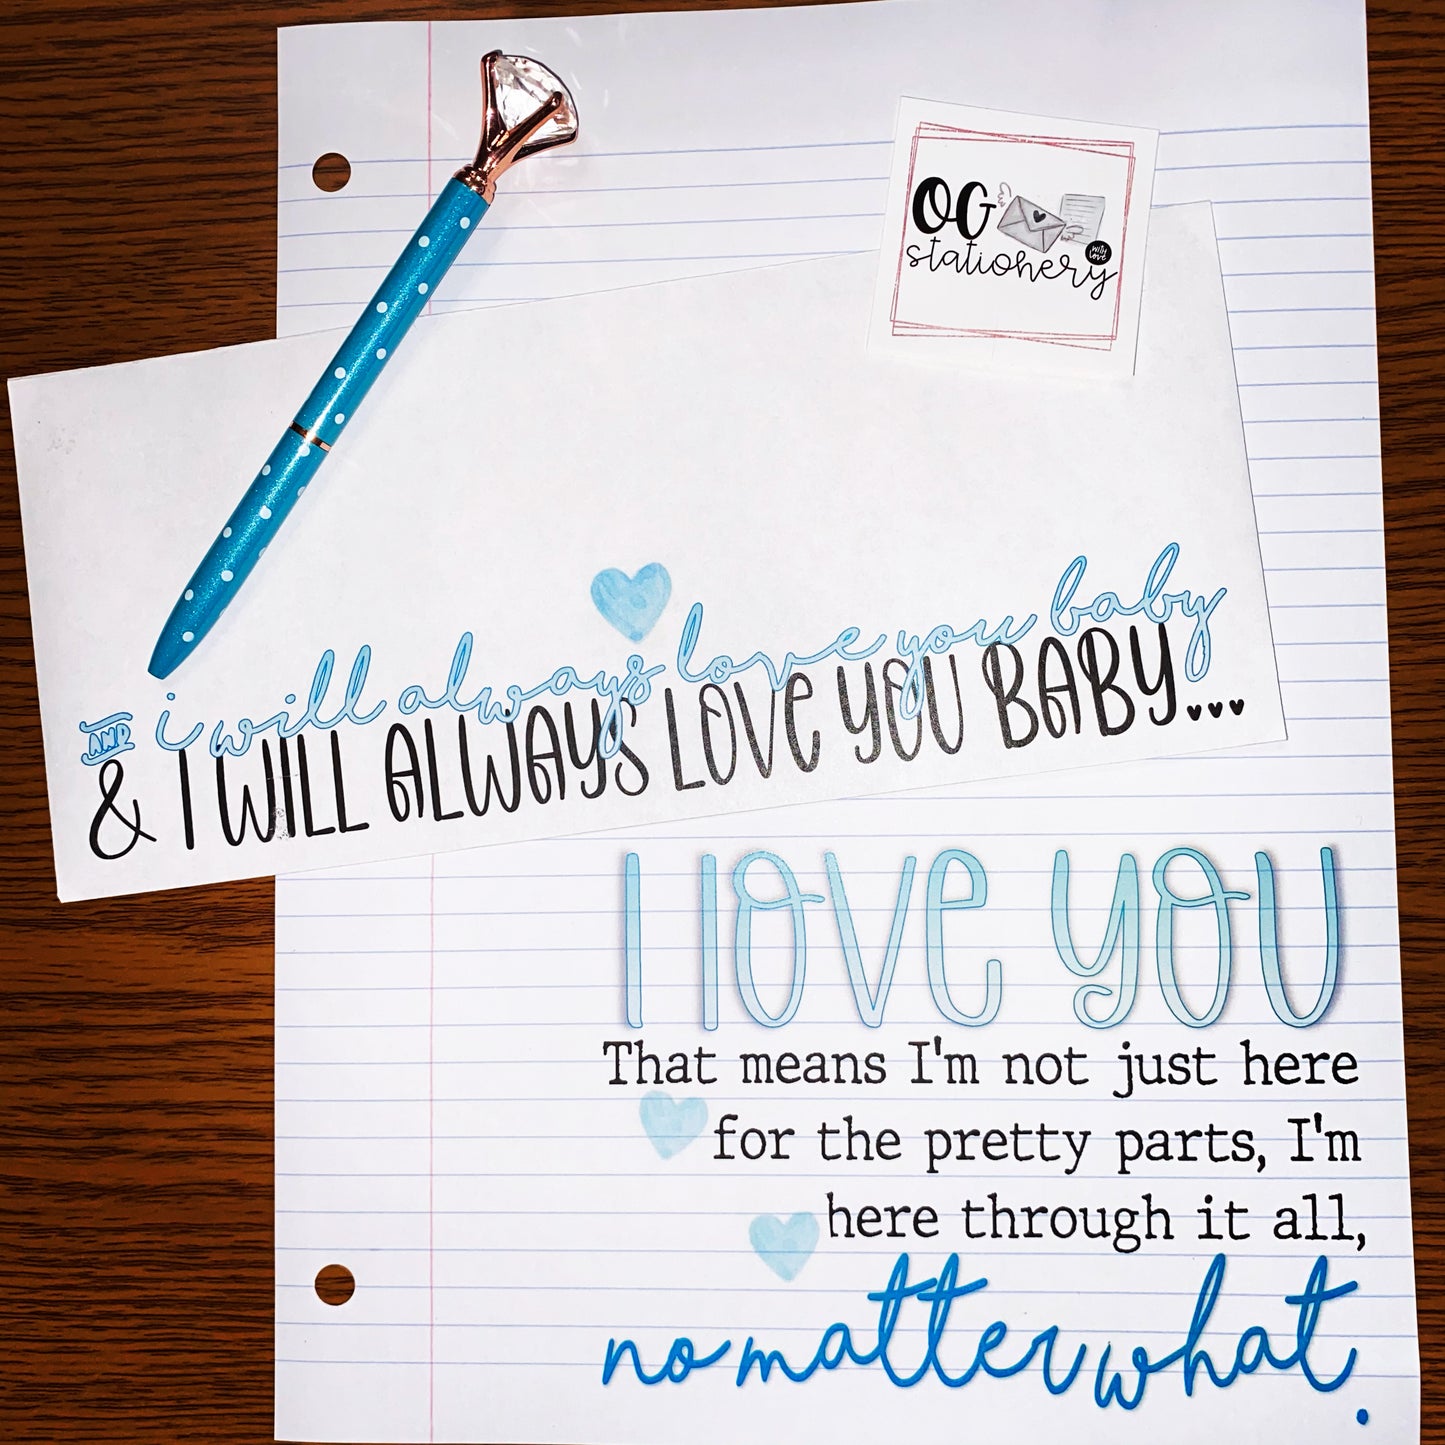 OG
stationery
with
love
AND i will always love you baby
& I WILL ALWAYS LOVE YOU BABY...
I LOVE YOU
That means I'm not just here
for the pretty parts, I'm
here through it all,
no matter what.